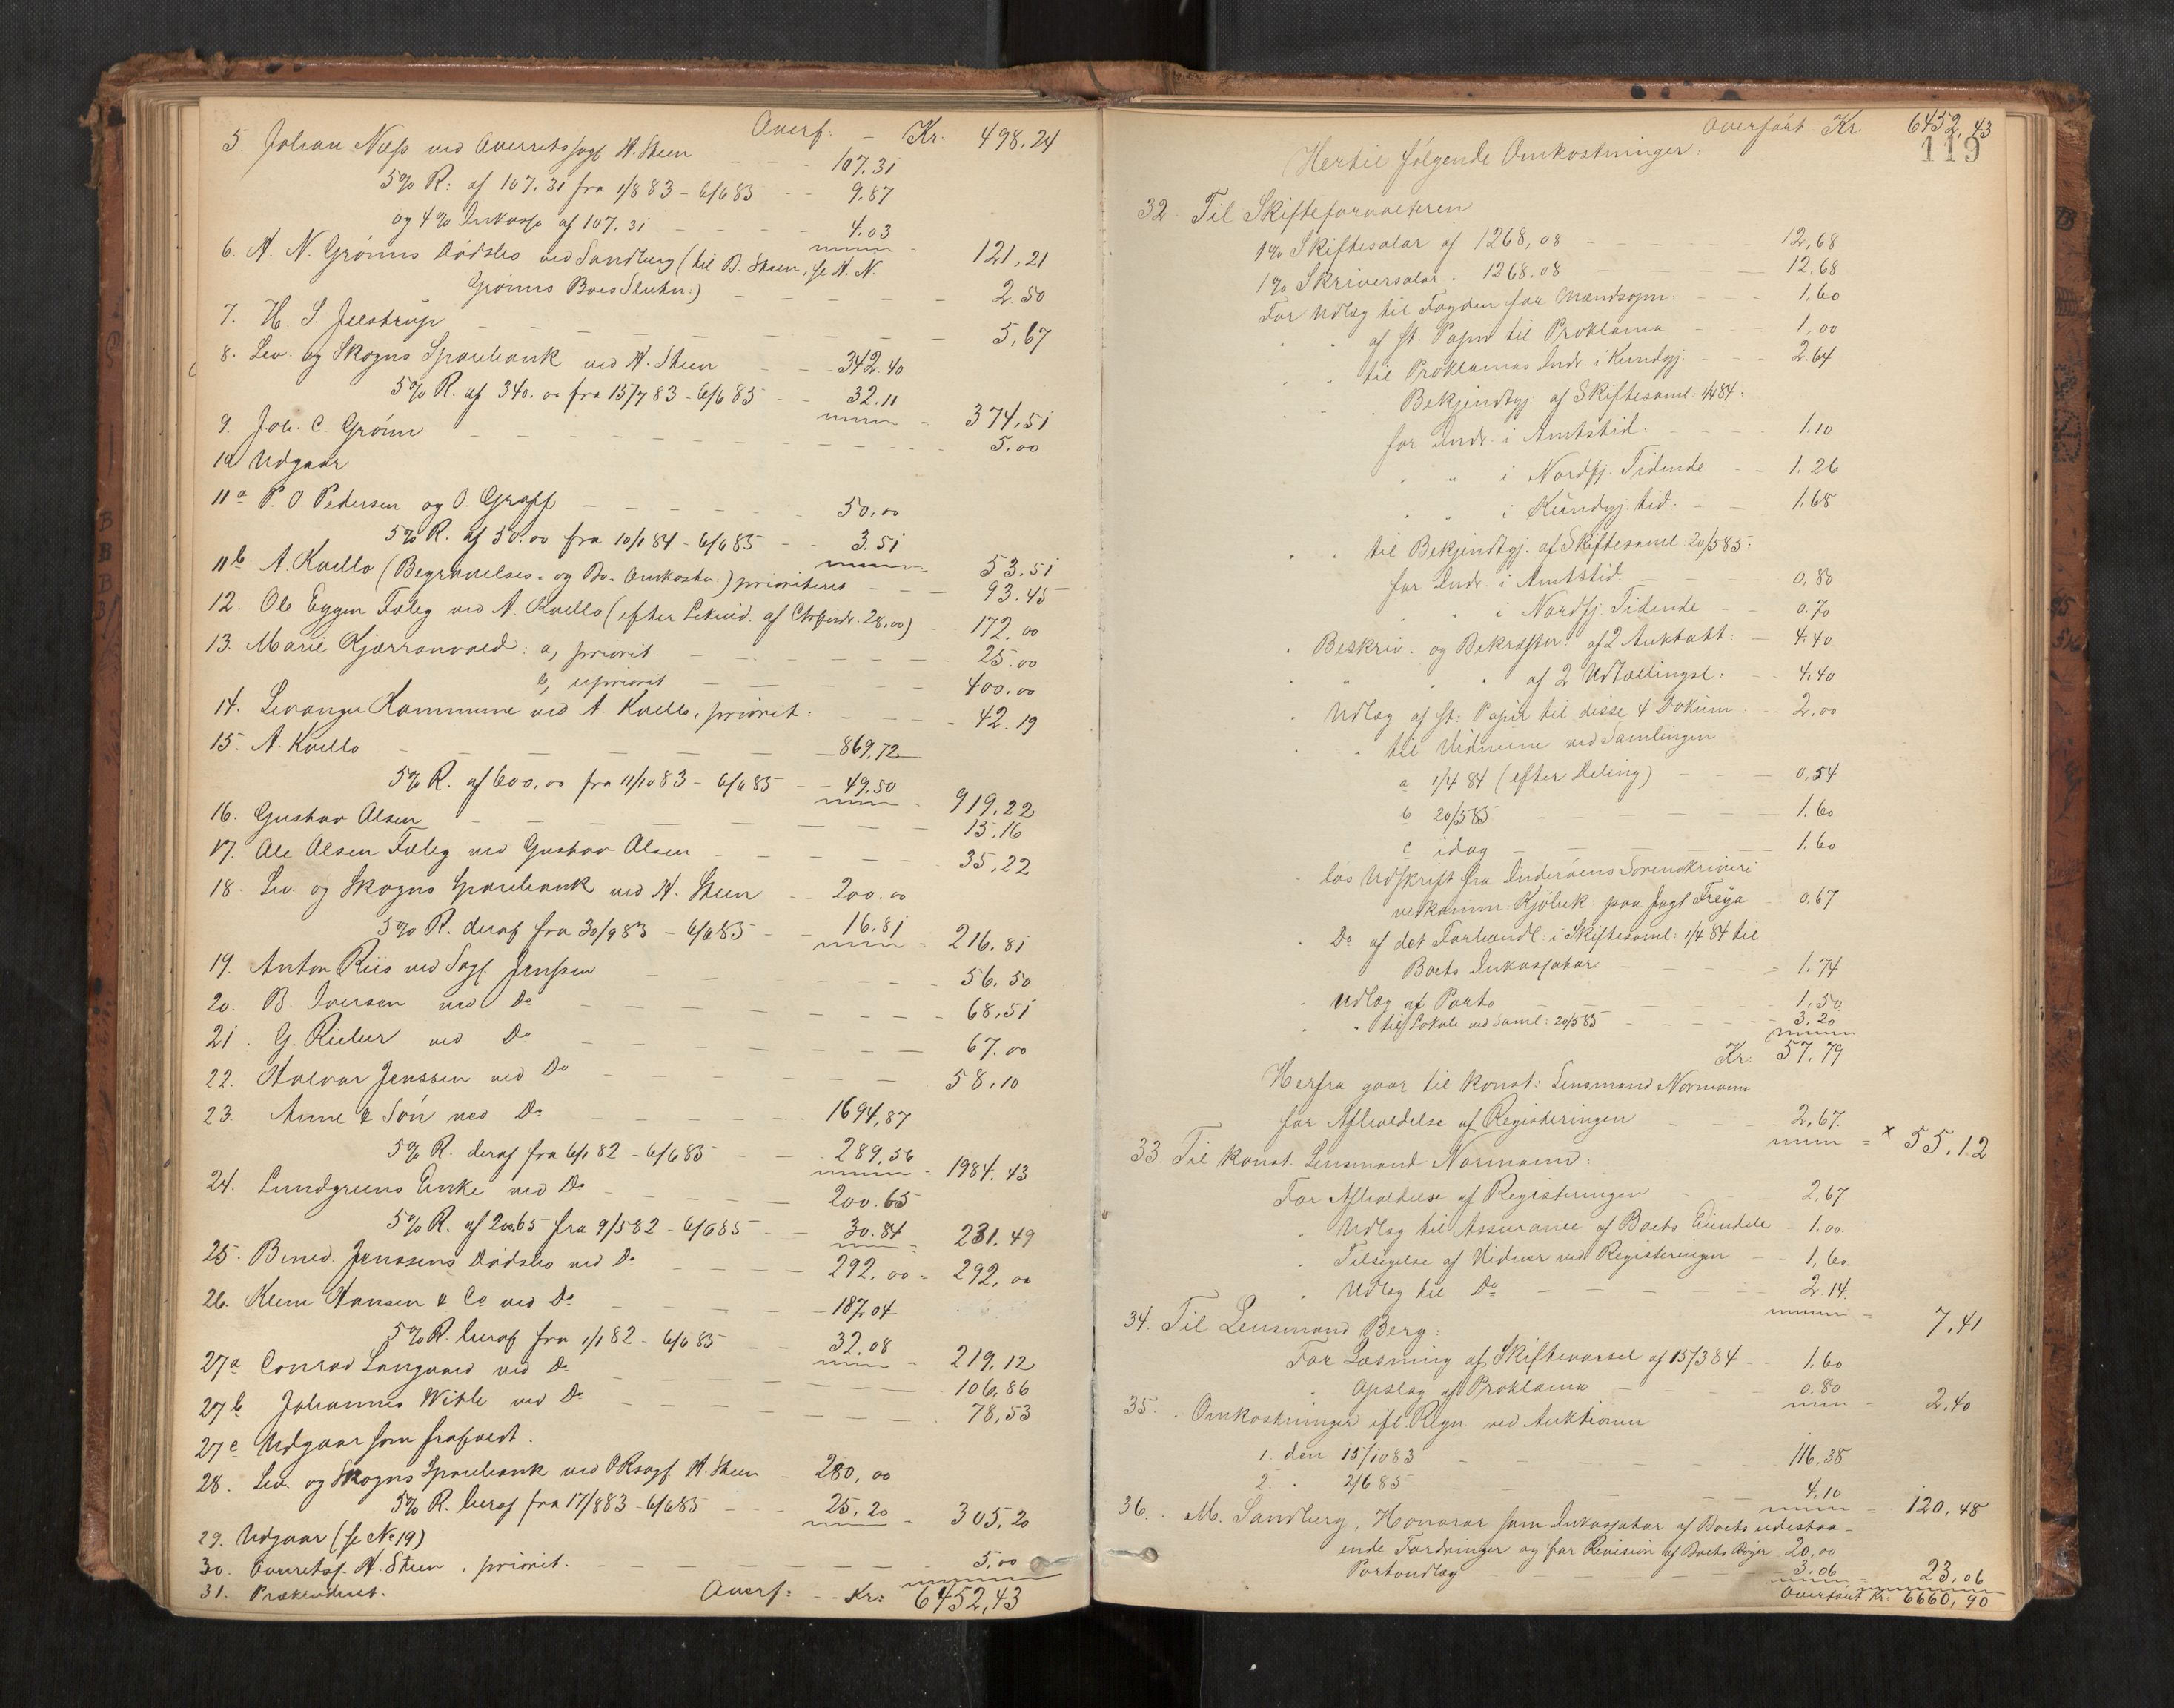 Overf. – Kr. 498.24
5. Johan Næss ved Overretssagf. H. Steen – – – 107.31
5% R. af 107.31 fra 1/8 83 – 6/6 85 – – 9.87
og 4% Inkasso af 107.31 – – – 4.03
121,21
6. A. N. Grønns Dødsbo ved Sandberg (til B. Steen, se A. N.
Grønns Boes Slutn:) – – – – – 2.50
7. H. S. Jelstrup – – – – – – 5,67
8. Lev. og Skogns Sparebank ved H. Steen – – 342.40
5% R. af 340.00 fra 15/7 83 – 6/6 85 – – 32.11
374,51
9. Joh. C. Grønn – – – – – – 5.00
10. Udgaar
11a P. O. Pedersen og O. Graff – – – – 50.00
5% R. af 50.00 fra 10/1 84 – 6/6 85 – – 3.51
53.51
11b A. Kvello (Begravelses- og Bo-Omkostn.) prioriteres – – – 93.45
12. Ole Eggen Fæleg ved A. Kvello (efter Lekvid. af 28.00) – 172.00
13. Marie Kjærranvald: a, priorit. – – – – – 25.00
b, upriorit – – – – – 400.00
14. Levanger Kommune ved A. Kvello, priorit: – – – 42.19
15. A. Kvello – – – – – 869.72
5% R. af 600,00 fra 11/10 83 – 6/6 85 – – 49.50
919,22
16. Gustav Olsen – – – – – – 15.16
17. Ole Olsen Fæleg ved Gustav Olsen – – – – 35,22
18. Lev. og Skogns Sparebank ved H. Steen – – 200.00
5% R. deraf fra 30/9 83 – 6/6 85 – – 16.81
216.81
19. Anton Riis ved Sagf. Jenssen – – – – 56.50
20. B. Iversen ved Do – – – – – 68,51
21. G. Rieber ved Do – – – – – 67.00
22. Halvar Jenssen ved Do – – – – – 58,10
23. Anne & Søn ved Do – – – – 1694,87
5% R. deraf fra 6/1 82 – 6/6 85 – – 289,56
1984.43
24. Lundgreens Enke ved Do – – – – 200.65
5% R. af 200.65 fra 9/5 82 – 6/6 85 – – 30.84
231.49
25. Bened. Jenssens Dødsbo ved Do – – – 292,00 – 292,00
26. Klem Hansen & Co ved Do – – – – 187.04
5% R. heraf fra 1/1 82 – 6/6 85 – – 32.08
219,12
27a Conrad Langaard ved Do – – – – – 106,86
27b Johannes Wible ved Do – – – – – 78,53
27c Udgaar som frafaldt.
28. Lev. og Skogns Sparebank ved ORsagf H. Steen – 280,00
5% R. heraf fra 17/8 83 – 6/6 85 – – 25,20
305,20
29. Udgaar (se No 19)
30. Overretsf. H. Steen, priorit. – – – – – 5,00
31. Prækluderet. Overf: – – Kr: 6452,43
Overført Kr. 6452,43
119
Hertil følgende Omkostninger:
32. Til Skifteforvalteren
1% Skiftesalar af 1268,08 – – – 12,68
1% Skriversalar „ 1268.08 – – – 12.68
For Udlæg til Fogden for Mændsopn: – – 1,60
„ „ af st. Papir til Proklama – – 1,00
„ „ til Proklamas Indr. i Kundgj. – – 2.64
„ „ „ Bekjendtgj. af Skiftesaml. 1/4 84:
for Indr. i Amtstid. – – – 1.10
„ „ i Nordfj. Tidende – – 1.26
„ „ i Kundgj. tid: – – 1,68
„ „ til Bekjendtgj. af Skiftesaml 20/5 85:
for Indr. i Amtstid. – – – 0,80
„ i Nordfj. Tidende – – 0.70
„ Beskriv. og Bekræftn. af 2 Auktatt: – 4.40
„ „ „ „ af 2 Udtællingsl. – – 4.40
„ Udlæg af st: Papir til disse 4 Dokum: – – 2,00
„ „ til Vidnerne ved Samlingen
a 1/4 84 (efter Deling) – – – 0,54
b 20/5 85 – – – – 1.60
c idag – – – – 1.60
„ løs Udskrift fra Inderøens Sorenskriveri
vedkomm. Kjøbek: paa Jagt Freya – 0,67
„ Do af det Forhandl: i Skiftesaml: 1/4 84 til
Boets Inkassator – – – – 1.74
„ Udlæg af Porto – – – – 1,50
„ „ til Lokale ved Saml: 20/5 85 – – – 3,20
Kr: 57.79
Herfra gaar til konst: Lensmand Normann
for Afholdelse af Registeringen – – – 2,67.
x 55,12
33. Til konst. Lensmand Normann:
For Afholdelse af Registeringen – – 2,67.
„ Udlæg til Assurance af Boets Eiendele – 1.00.
„ Tilsigelse af Vidner ved Registeringen – 1,60.
„ Udlæg til Do – – – – 2.14.
7,41
34. Til Lensmand Berg:
For Læsning af Skiftevarsel af 15/3 84 – – 1,60
„ Opslag af Proklama – – – 0.80
2,40
35. „ Omkostninger ifl. Regn. ved Auktionen
1. den 15/10 83 – – – – 116,38
2. „ 2/6 85 – – – – 4,10
120,48
36. „ M. Sandberg, Honorar som Inkassator af Boets udestaa-
ende Fordringer og for Revision af Boets Bøger 20,00
Portoudlæg – – – – 3,06
23,06
Overført Kr: 6660,90